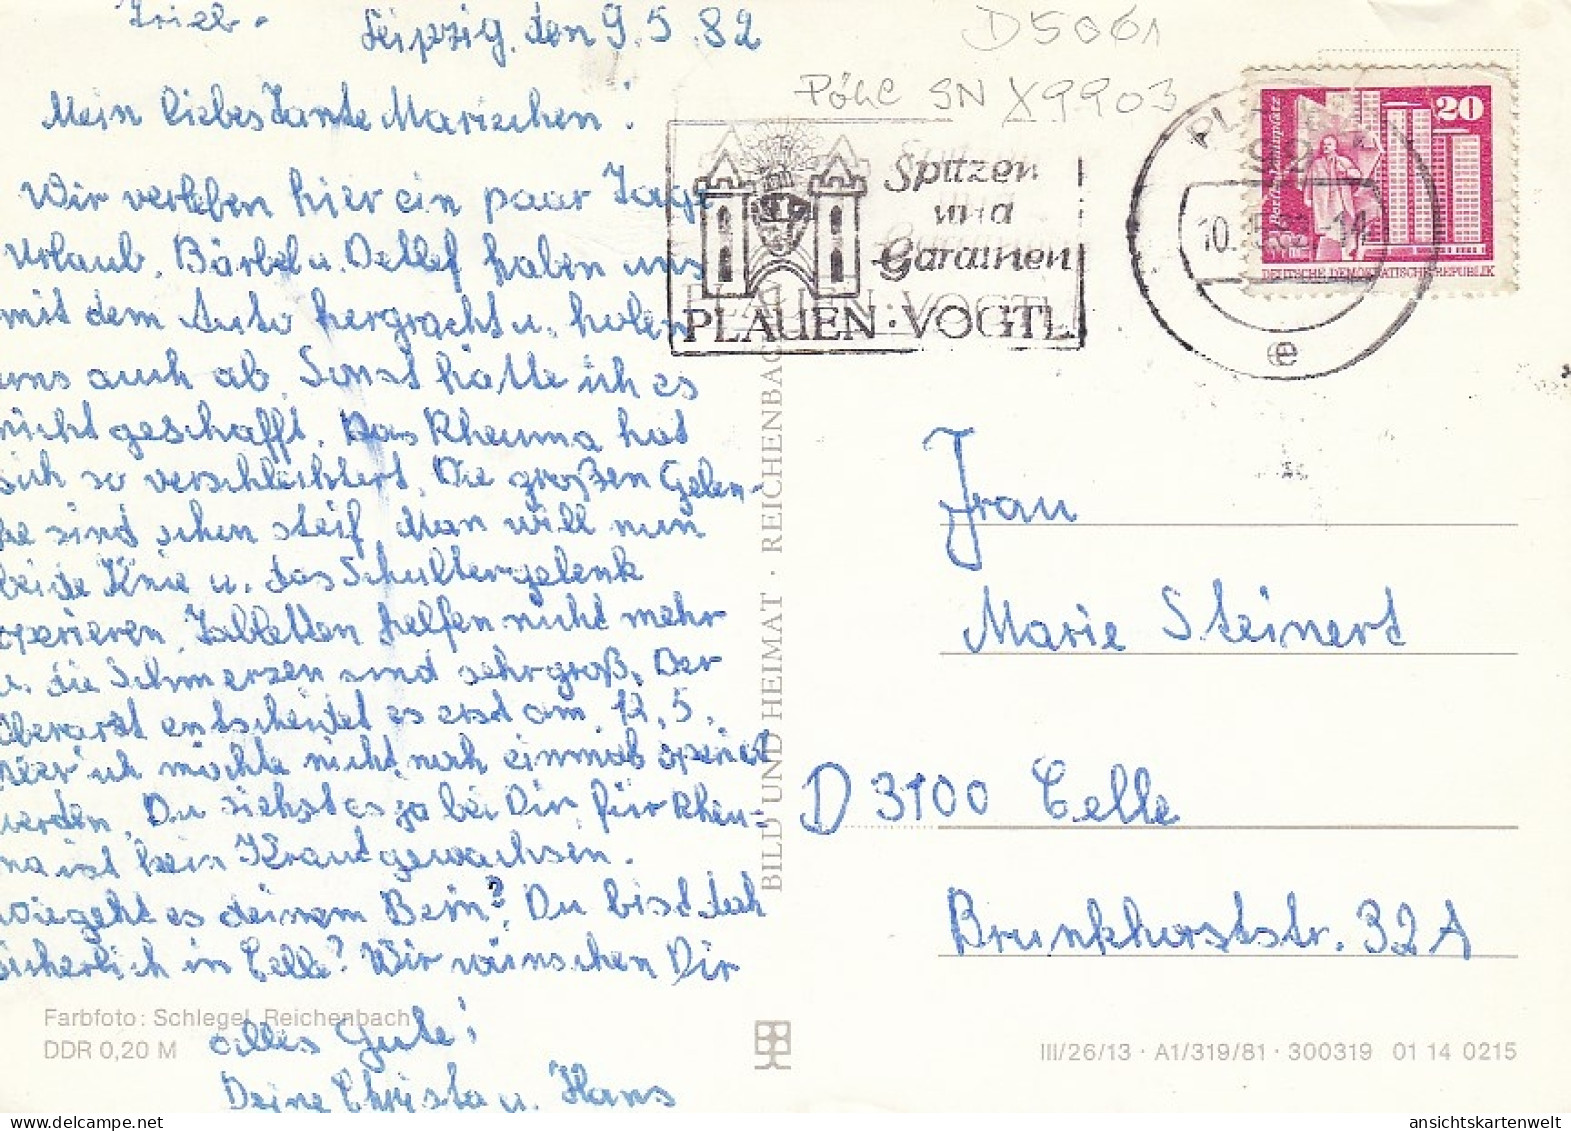 Trieb.
Leipzig, den 9.5.82
D5061
Pöhl SN X9903
Mein liebes Tante Mariechen!
Wir verleben hier ein paar Tage
Urlaub. Bärbel u. Detlef haben uns
mit dem Auto hergracht u. holen
uns auch ab. Sonst hätte ich es
nicht geschafft. Das Rheuma hat
sich so verschlechtert. Die großen Gelen-
ke sind schon steif. Man will nun
beide Knie u. das Schultergelenk
operieren. Tabletten helfen nicht mehr
u. die Schmerzen sind sehr groß. Der
Oberarzt entscheidet es erst am 12.5.
ich möchte nicht noch einmal operiert
werden. Du siehst es ja bei Dir, für Rheu-
ma ist kein Kraut gewachsen.
Wie geht es deinem Bein? Du bist doch
sicherlich in Celle? Wir wünschen Dir
alles Gute!
Deine Christa u. Hans
Farbfoto: Schlegel, Reichenbach
DDR 0,20 M
BILD UND HEIMAT · REICHENBACH
Spitzen
und
Gardinen
PLAUEN · VOGTL.
PLAUEN
92
10.-5.82-14
e
20
DEUTSCHE DEMOKRATISCHE REPUBLIK
Frau
Marie Steinert
D 3100 Celle
Brunkhorststr. 32A
III/26/13 · A1/319/81 · 300319 01 14 0215
ansichtskartenwelt.com